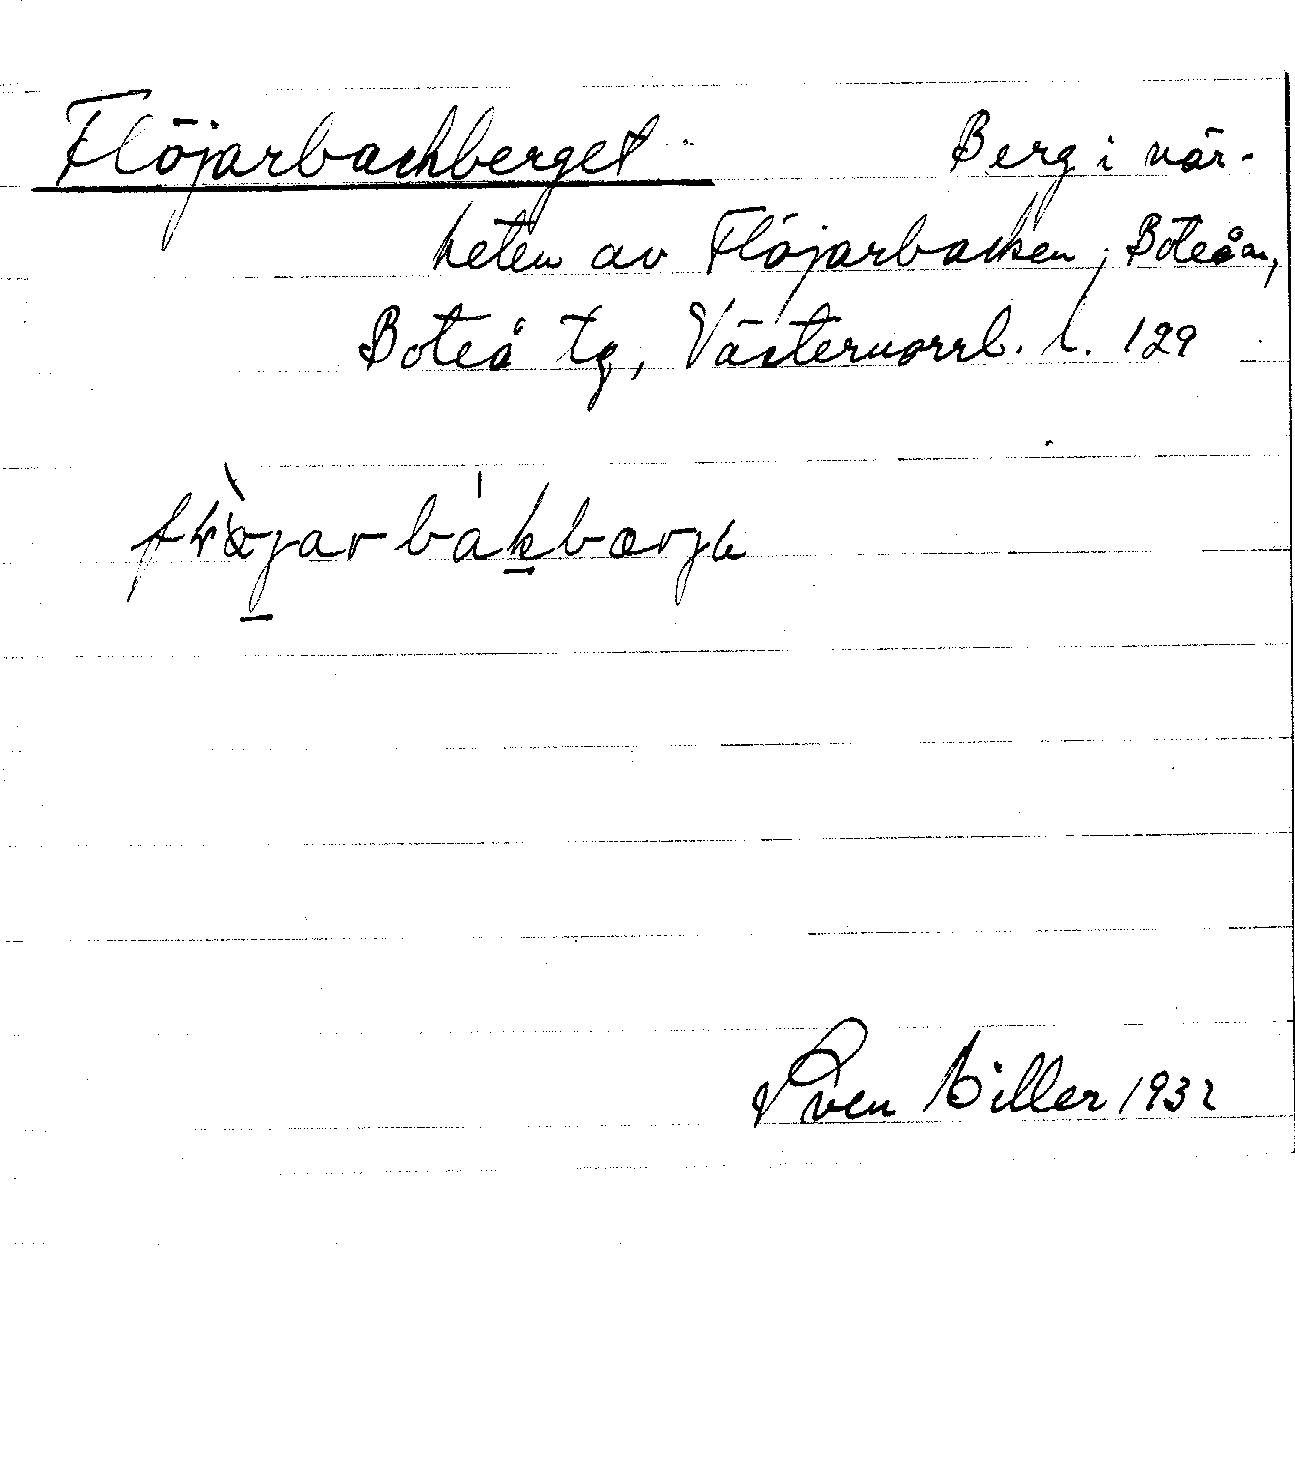 Flöjarbackberget. Berg i när-
heten av Flöjarbacken, Boteån,
Boteå tg, Västernorrl. l. 129
Sven Hiller 1932